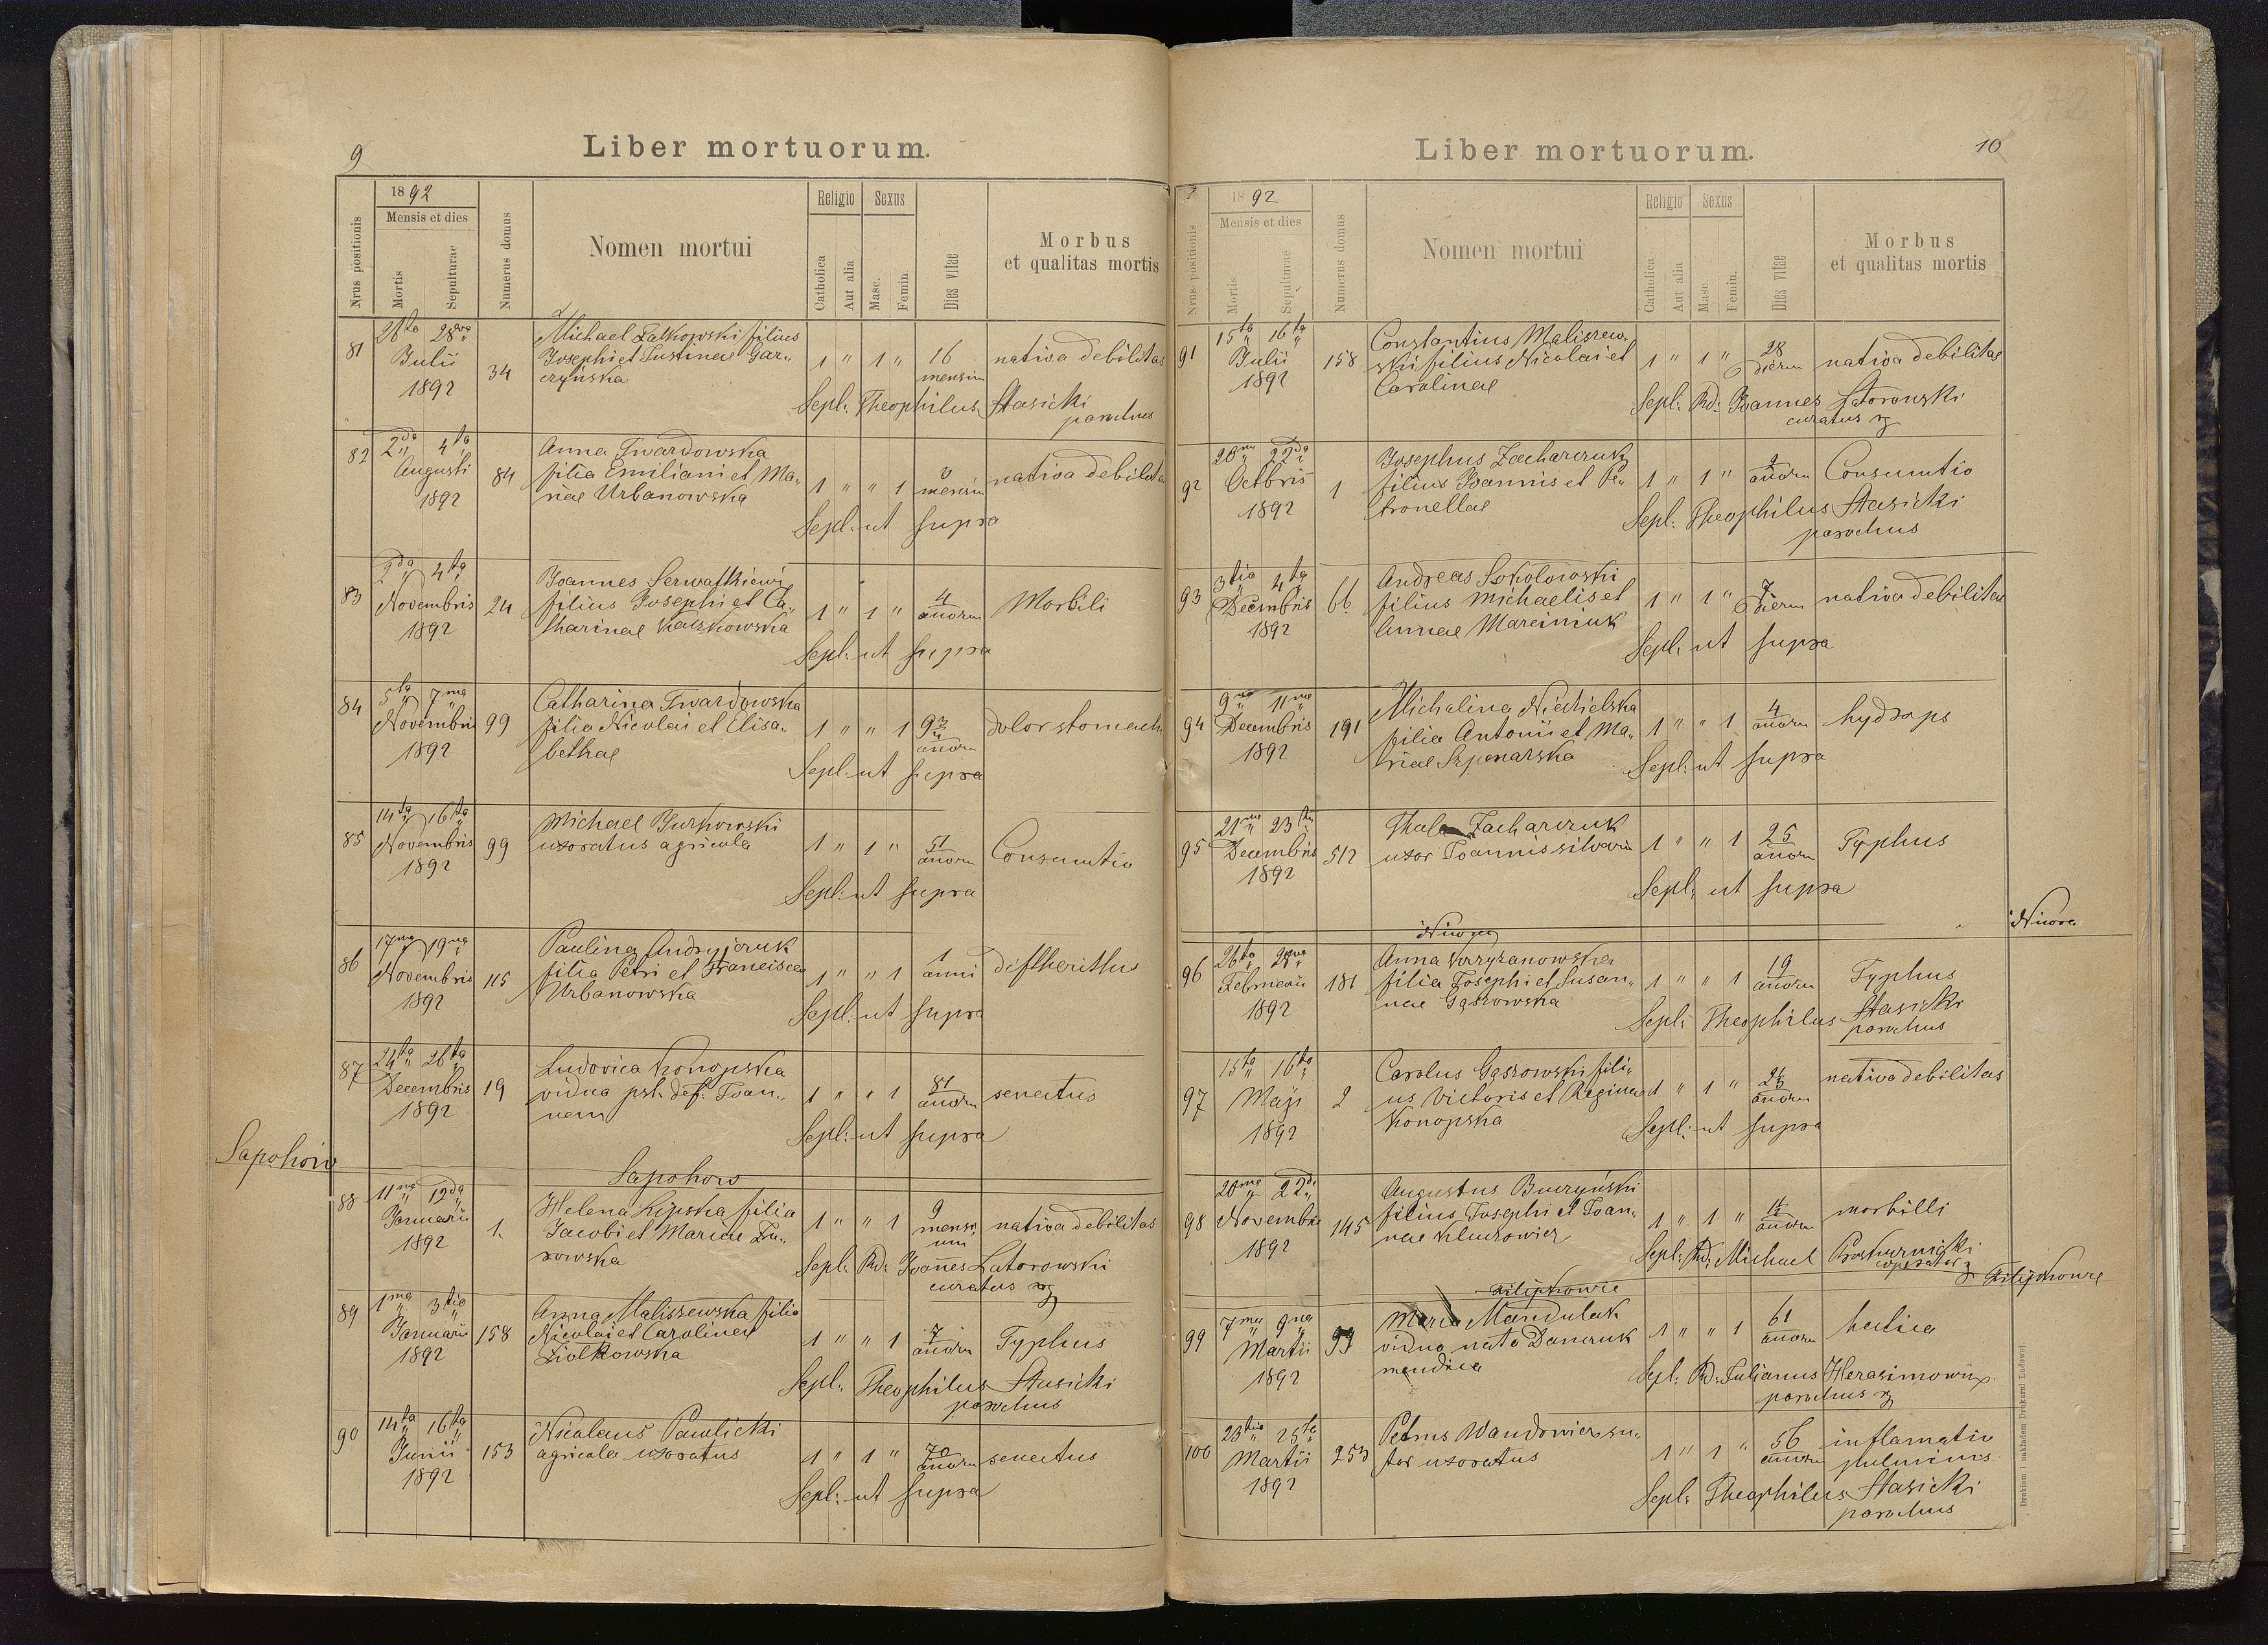 9
Liber mortuorum.
Nrus positionis
1892
Mensis et dies
Mortis
Sepulturae
Numerus domus
Nomen mortui
Religio
Catholica
Aut alia
Sexus
Masc.
Femin.
Dies vitae
Morbus
et qualitas mortis
81
26ta 28va
Julii
1892
34
Michael Zatkowski filius
Josephi et Justinae Gar-
czyńska
1 " 1 "
16
mensium
nativa debilitas
Sepl: Theophilus Stasicki
parochus
82
2da 4ta
Augusti
1892
84
Anna Twardowska
filia Emiliani et Ma-
riae Urbanowska
1 " " 1
mensium
nativa debilitas
Sepl: ut supra
83
2da 4ta
Novembris
1892
24
Joannes Serwatkiewicz
filius Josephi et Ca-
tharinae Kaczkowska
1 " 1 "
4
annorum
Morbili
Sepl: ut supra
84
5ta 7ma
Novembris
1892
99
Catharina Twardowska
filia Nicolai et Elisa-
bethae
1 " " 1
annorum
dolor stomachi
Sepl: ut supra
85
14ta 16ta
Novembris
1892
99
Michael Jurkowski
uxoratus agricola
1 " 1 "
51
annorum
Consumtio
Sepl: ut supra
86
17ma 19na
Novembris
1892
115
Paulina Andryjczuk
filia Petri et Francisca
Urbanowska
1 " " 1
1
anni
diftherithis
Sepl: ut supra
87
24ta 26ta
Decembris
1892
19
Ludovica Konopska
vidua pst. def. Joan-
nem
1 " " 1
81
annorum
senectus
Sepl: ut supra
Sapohow
Sapohow
88
11ma 12da
Januarii
1892
1.
Helena Lipska filia
Jacobi et Mariae Zu-
rowska
1 " " 1
9
mensi-
um
nativa debilitas
Sepl: Rd: Joannes Latorowski
curatus
89
1ma 3tia
Januarii
1892
158
Anna Maliszewska filia
Nicolai et Carolinae
Ziolkowska
1 " " 1
7
annorum
Typhus
Sepl: Theophilus Stasicki
parochus
90
14ta 16ta
Junii
1892
153
Nicolaus Pawlicki
agricola uxoratus
1 " 1 "
70
annorum
senectus
Sepl: ut supra
10
Liber mortuorum.
Nrus positionis
1892
Mensis et dies
Mortis
Sepulturae
Numerus domus
Nomen mortui
Religio
Catholica
Aut alia
Sexus
Masc.
Femin.
Dies vitae
Morbus
et qualitas mortis
91
15ta 16ta
Julii
1892
158
Constantius Maliszew-
ski filius Nicolai et
Carolinae
1 " 1 "
28
dierum
nativa debilitas
Sepl: Rd: Joannes Latorowski
curatus
92
20ma 22da
Octbris
1892
1
Josephus Zacharczuk
filius Joannis et Pe-
tronellae
1 " 1 "
annorum
Consumtio
Sepl: Theophilus Stasicki
parochus
93
3tia 4ta
Decembris
1892
66
Andreas Sokolowski
filius Michaelis et
Annae Marciniuk
1 " 1 "
7
dierum
nativa debilitas
Sepl: ut supra
94
9na 11ma
Decembris
1892
191
Michalina Niedzielska
filia Antonii et Ma-
riae Szponarska
1 " " 1
4
annorum
hydrops
Sepl: ut supra
95
21ma 23tia
Decembris
1892
512
Zacharczuk
uxor Joannis silvarii
1 " " 1
25
annorum
Typhus
Sepl: ut supra
Niwra
Niwra
96
26ta 28va
Februarii
1892
181
Anna Krzyzanowska
filia Josephi et Susan-
nae Gąszowska
1 " " 1
19
annorum
Typhus
Sepl: Theophilus Stasicki
parochus
97
15ta 16ta
Maji
1892
2
Carolus Gąszowski fili-
us Victoris et Reginae
Konopska
1 " 1 "
annorum
nativa debilitas
Sepl: ut supra
98
20ma 22da
Novembris
1892
145
Augustus Buczyński
filius Josephi et Joan-
nae Kluczowicz
1 " 1 "
annorum
morbilli
Sepl: Rd: Michael Proskurnicki
cooperator
Filipkowce
Filipkowce
99
7ma 9na
Martii
1892
Maria Mandulak
vidua nata Danczuk
mendica
1 " " 1
61
annorum
hectica
Sepl: Rd: Julianus Herasimowicz
parochus
100
23tia 25ta
Martii
1892
253
Petrus Wandowicz su-
tor uxoratus
1 " 1 "
56
annorum
inflamatio
pulminis
Sepl: Theophilus Stasicki
parochus
Drukiem i nakładem Drukarni Ludowej